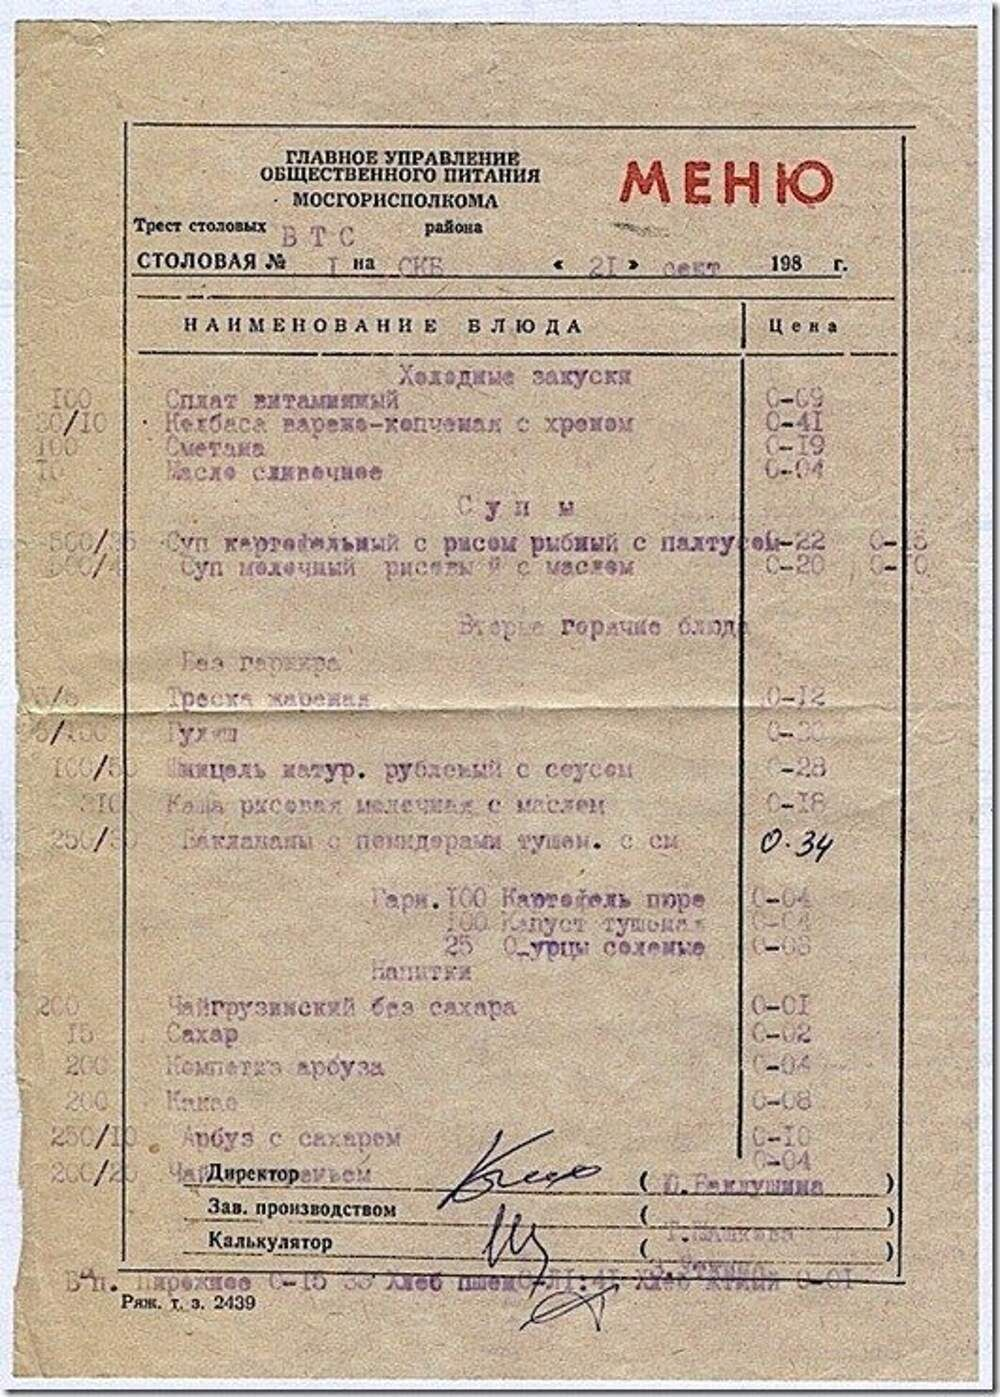 ГЛАВНОЕ УПРАВЛЕНИЕ
ОБЩЕСТВЕННОГО ПИТАНИЯ
МОСГОРИСПОЛКОМА
МЕНЮ
Трест столовых ВТС района
СТОЛОВАЯ № I на СКБ « 2I » сент 198 г.
НАИМЕНОВАНИЕ БЛЮДА Цена
Холодные закуски
100 Сплат витаминный 0-09
/10 Колбаса варено-копченая с хреном 0-4I
100 Сметана 0-I9
10 Масло сливочное 0-04
Супы
500/ Суп картофельный с рисом рыбный с палтусом 0-22
Суп молочный рисовый с маслом 0-20
Вторые горячие блюда
Без гарнира
Треска жареная 0-I2
Гуляш
I00/50 Шницель натур. рубленый с соусом -28
3I0 Каша рисовая молочная с маслом 0-I8
250/30 Баклажаны с помидорами тушен. с см 0.34
Гарн. I00 Картофель пюре 0-04
I00 Капуст тушеная 0-04
25 О_урцы соленые
Напитки
200 Чайгрузинский без сахара 0-0I
I5 Сахар 0-02
200 Компотиз арбуза 0-04
200 Какао 0-08
250/I0 Арбуз с сахаром 0-I0
200/20 Чай 0-04
Директор ( )
Зав. производством ( )
Калькулятор ( )
Б/п. Пирожное 0-I5 Хлеб пшен Хлеб 0-0I
Ряж. т. з. 2439